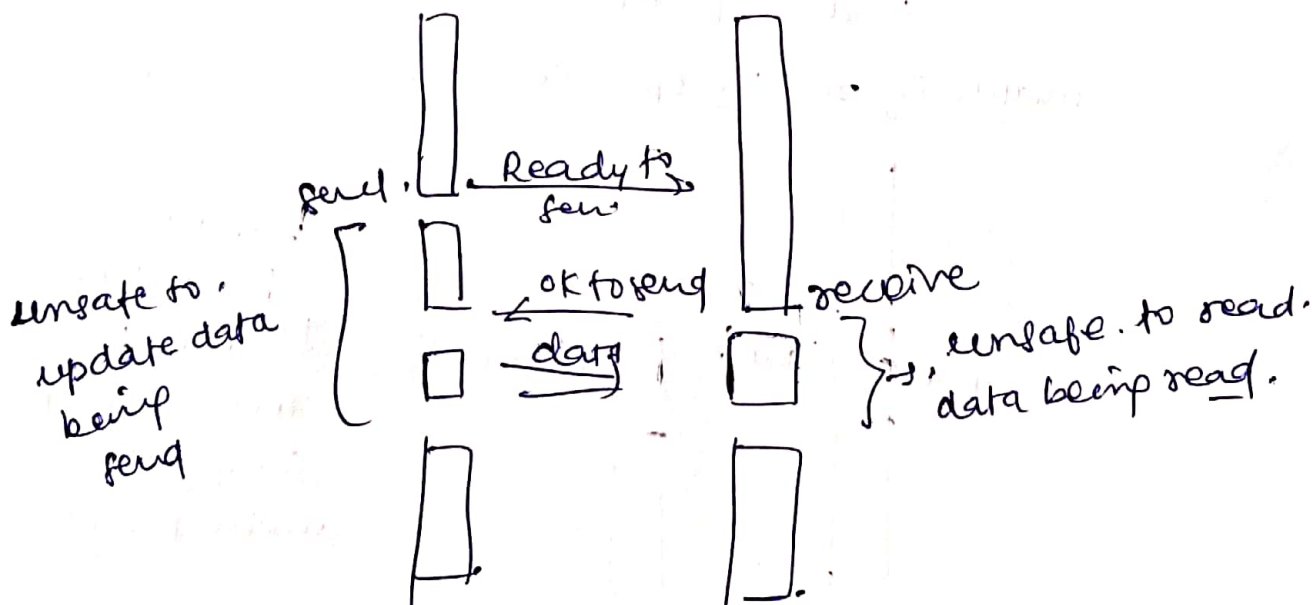 send.
Ready to
sen.
unsafe to.
update data
being
send
ok to send
data
receive
unsafe. to read.
data being read.